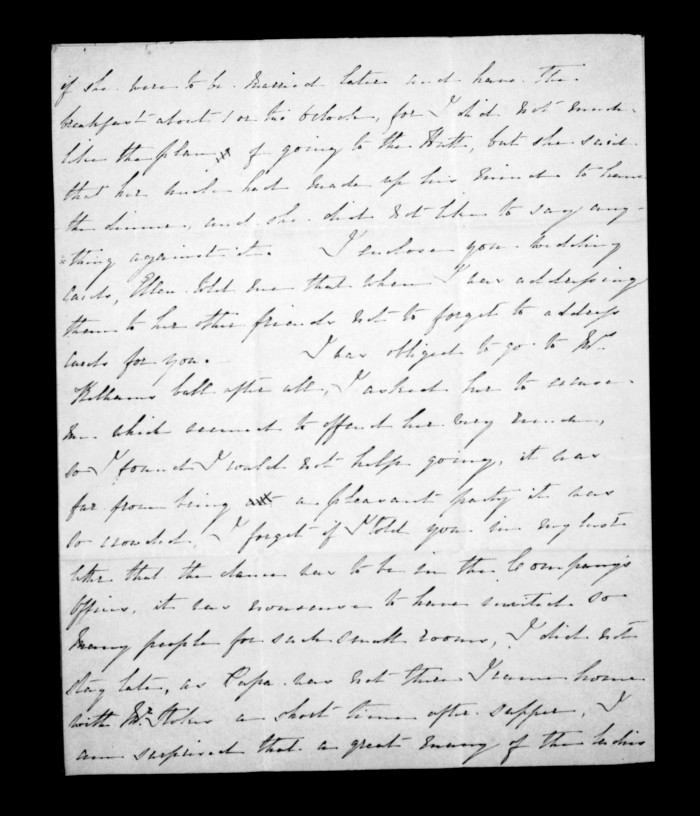 if she were to be married later and have the
breakfast about 1 or two O'clock, for I did not much
like the plan of going to the Hutt, but she said
that her uncle had made up his mind to have
the dinner, and she did not like to say any-
=thing against it. I enclose you wedding
cards, Ellen told me that when I was addressing
them to her other friends not to forget to address
cards for you. I was obliged to go to Mrs
Kelhams ball after all, I asked her to excuse
me which seemed to offend her very much,
so I found I could not help going, it was
far from being a pleasant party it was
so crowded, I forget if I told you in my last
letter that the dance was to be in the Company's
Offices, it was nonsense to have invited so
many people for such small rooms, I did not
stay late, as Papa was not there I came home
with Mr Stokes a short time after supper, I
am surprised that a great many of the ladies